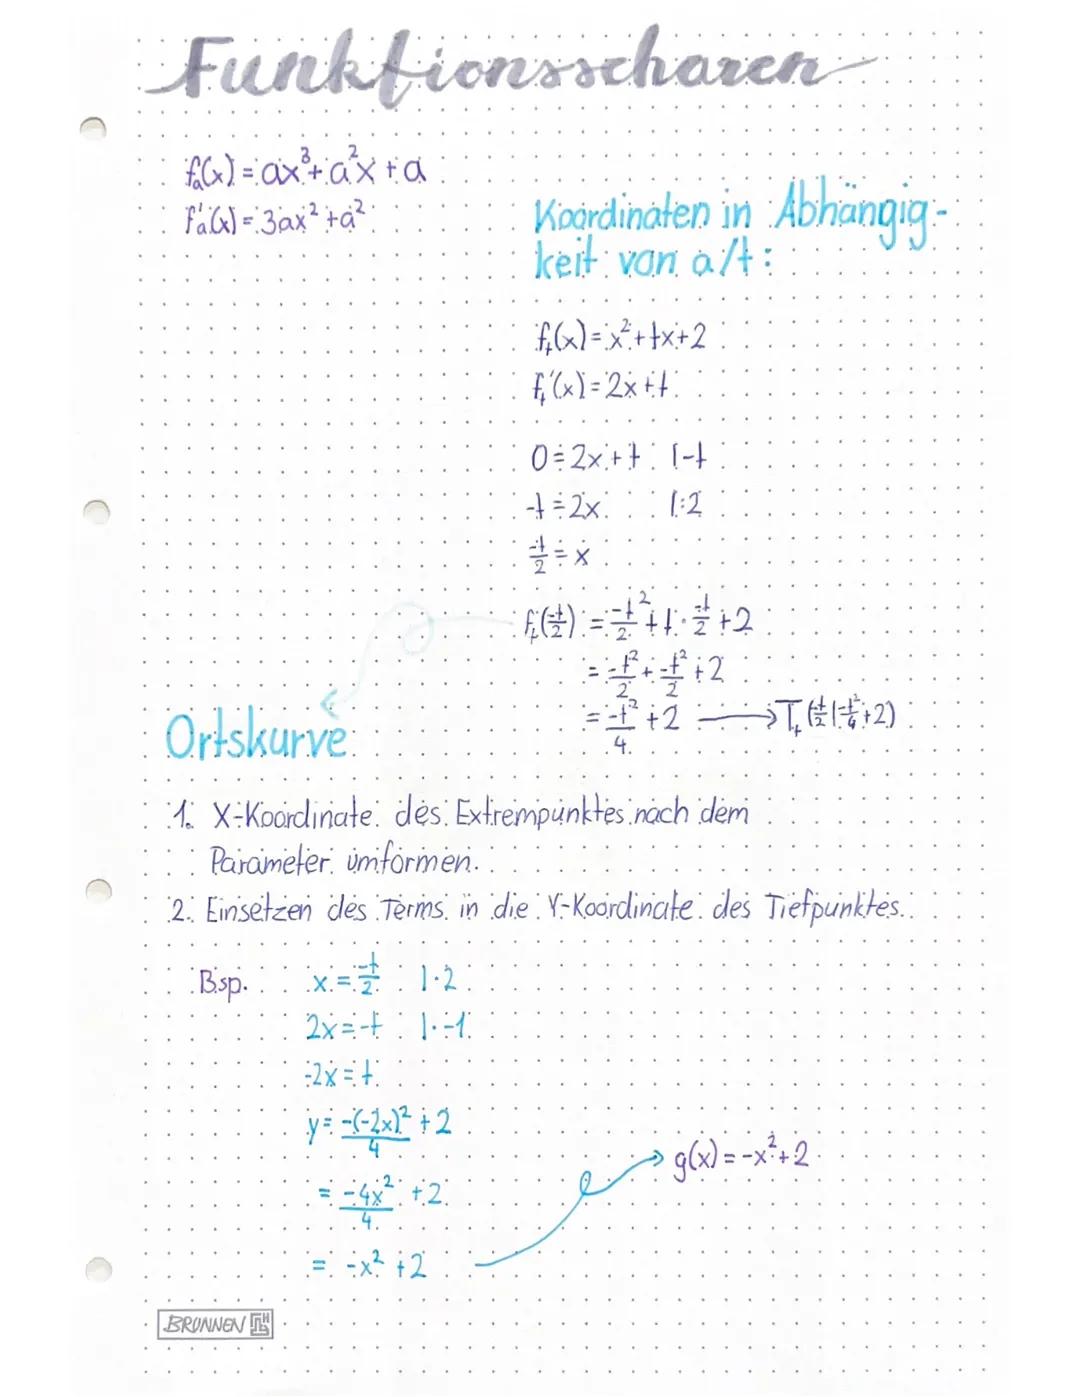 Funktionsscharen
fₐ(x) = ax³ + a²x + a
f'ₐ(x) = 3ax² + a²
Koordinaten in Abhängig-
keit von a/t:
fₜ(x) = x² + tx + 2
fₜ'(x) = 2x + t
0 = 2x + t |-t
-t = 2x |:2
-t/2 = x
fₜ(-t/2) = -t/2² + t · -t/2 + 2
= -t²/2 + -t²/2 + 2
= -t²/4 + 2 → Tₜ(-t/2 | -t²/4 + 2)
Ortskurve
1. X-Koordinate des Extrempunktes nach dem
Parameter umformen.
2. Einsetzen des Terms in die Y-Koordinate des Tiefpunktes.
Bsp. x = -t/2 |·2
2x = -t |·-1
-2x = t
y = -(-2x)²/4 + 2
= -4x²/4 + 2
= -x² + 2 → g(x) = -x² + 2
BRUNNEN